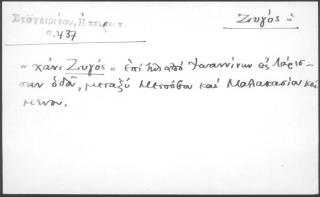 Ζυγός ὁ
Σταγειρίτου, Ἠπειρωτ.
σ. 437
"χάνι Ζυγός" ἐπὶ τῆς ἀπὸ Ἰωαννίνων εἰς Λάρισ-
σαν ὁδοῦ, μεταξὺ Μετσόβου καὶ Μαλακασίου κεί-
μενον.